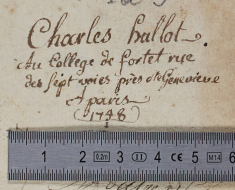 Charles hullot.
Au College de fortet rue
des sept voies près ste Genevieve
A paris
(1748)
1 2 0,2m 3 4 CE 5 M14 6